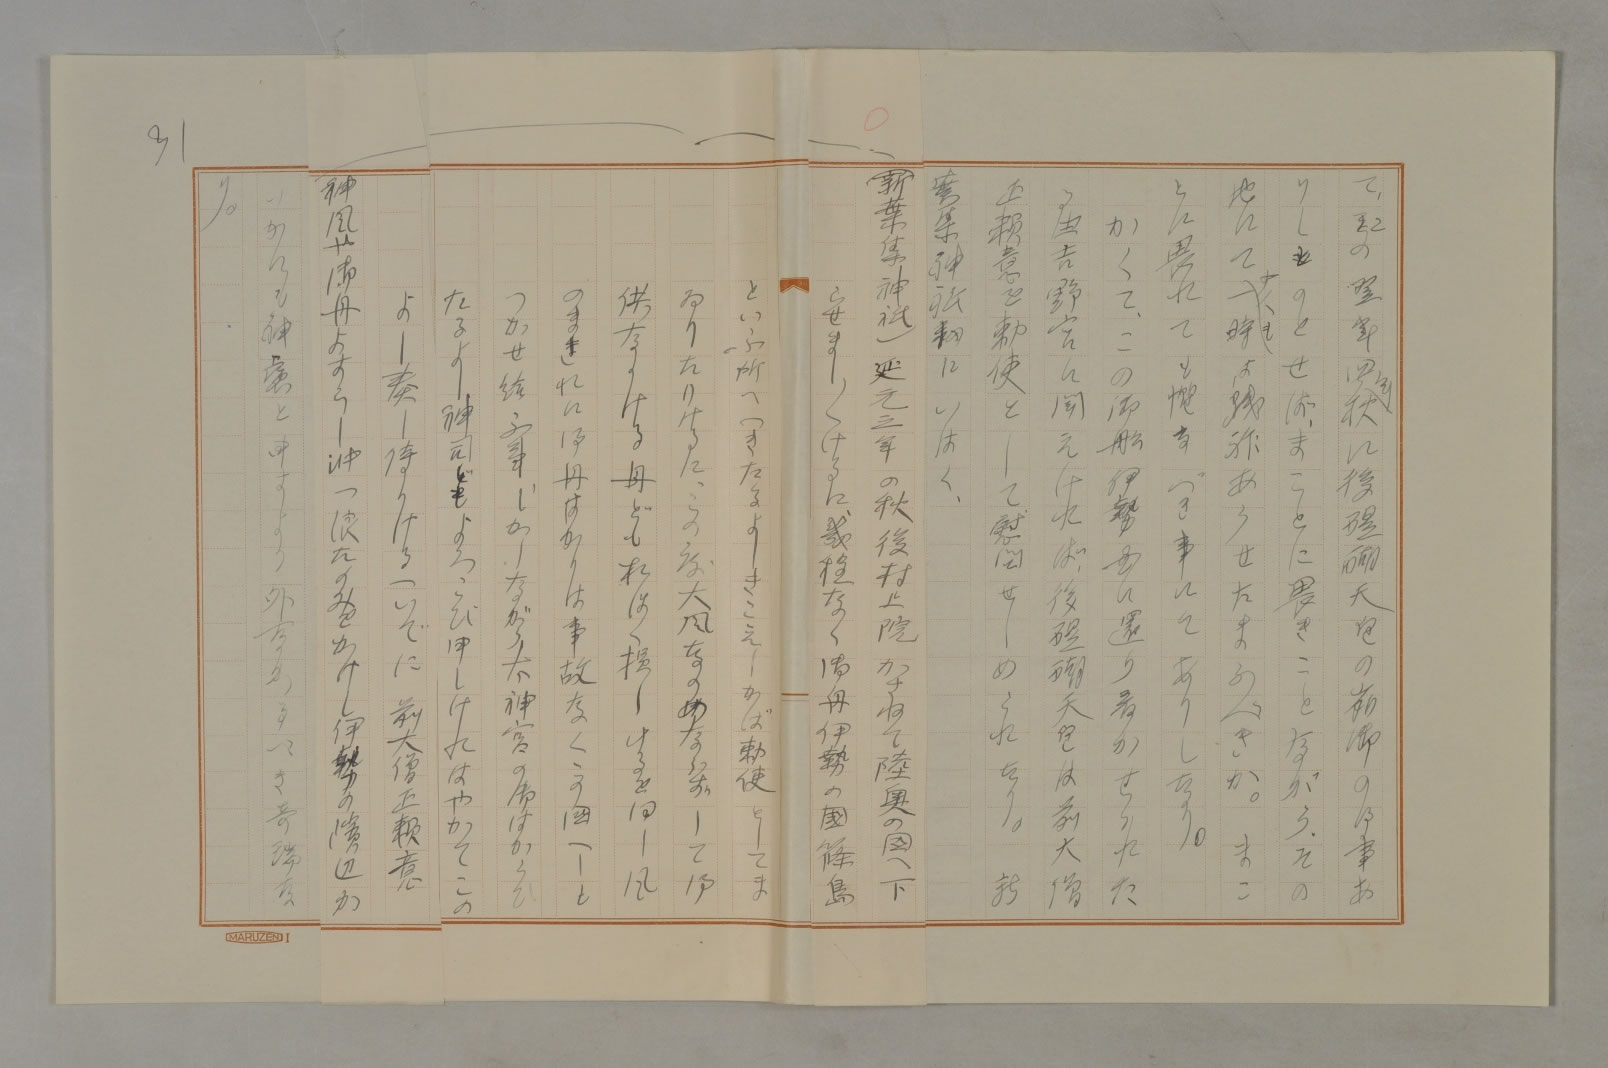 て、紀の翌年四秋に後醍醐天皇の崩御の御事あ
りしものとせば、まことに畏きことながら、その
地にて一時は残祚あらせたまふべきか。まこ
とに畏れても憚るべき事にてありしなり。
かくて、この御船伊勢国に還り着かせられた
る由吉野宮に聞えければ、後醍醐天皇は前大僧
正頼意を勅使として慰問せしめられたり。新
葉集神祇部にいはく、
(新葉集神祇)延元三年の秋後村上院かさねて陸奥の国へ下
らせましましけるに、義程なく御舟伊勢の国篠島
といふ所へつきたるよしきこえしかば勅使としてま
ゐりたりけるに、この度大風なのめならずして御
供なりける舟ども おほく損しけるを同し風
のまきれに御舟はかりは事故なくこの国へしも
つかせ給ふ事しかしながら太神宮の御はからひ
たるよし神司どもよろこび申しけれはやかてこの
よし奏し侍りけるついでに 前大僧正頼意
神風や御舟よすらし沖つ浪たのみをかけし伊勢の濱辺か
いかにも神慮と申すより外なかるべき奇瑞な
り。
31
MARUZEN I